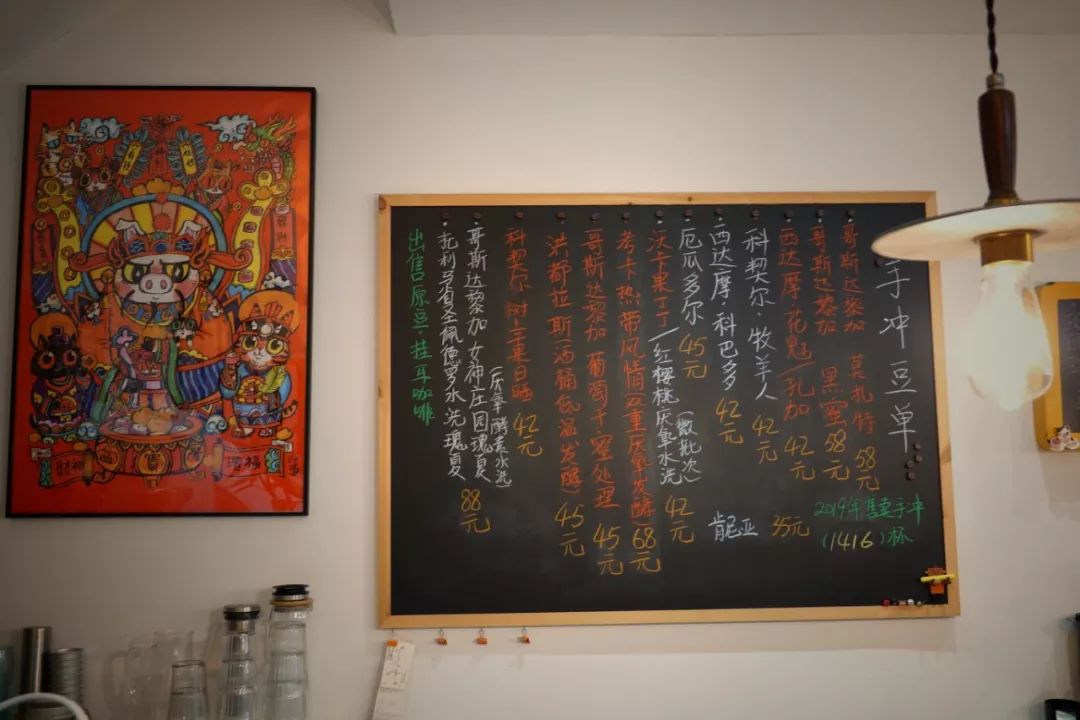 手冲豆单
哥斯达黎加 莫扎特 58元
哥斯达黎加 黑蜜 58元
西达摩·花魁/孔加 42元
科契尔·牧羊人 42元
西达摩·科巴多 42元
厄瓜多尔 45元
沃卡果丁丁/红樱桃厌氧水洗(微批次) 42元
考卡热带风情(双重厌氧发酵) 68元
哥斯达黎加 葡萄干蜜处理 45元
洪都拉斯(酒桶低温发酵) 45元
科契尔 树上三果日晒 42元
哥斯达黎加 女神庄园瑰夏(厌氧酵素水洗) 88元
托利马省圣佩德罗水洗瑰夏
出售原豆·挂耳咖啡
肯尼亚 35元
2019年售卖手冲
(1416)杯
財神